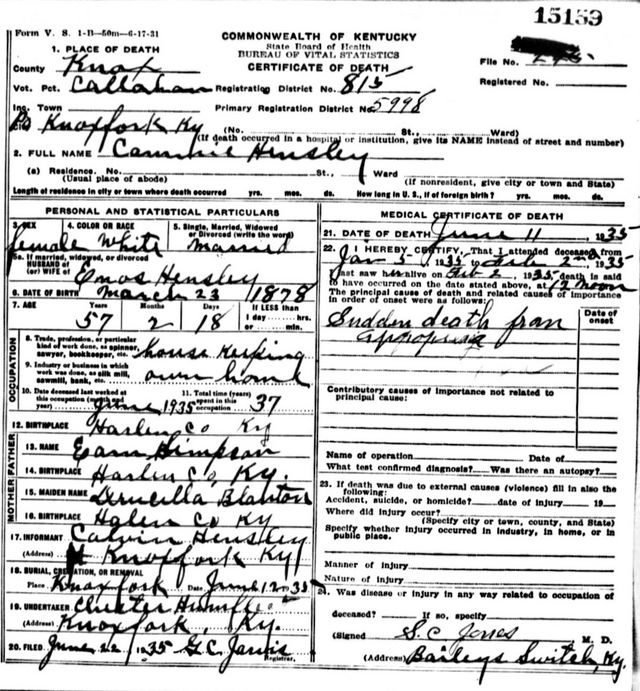 15159
Form V. S. 1-B—50m—6-17-31
COMMONWEALTH OF KENTUCKY
State Board of Health
BUREAU OF VITAL STATISTICS
CERTIFICATE OF DEATH
File No.
Registered No.
1. PLACE OF DEATH
County Knox
Vot. Pct. Callahan Registration District No. 815
Inc. Town Primary Registration District No. 5998
Po Knoxfork Ky (No. St., Ward)
(If death occurred in a hospital or institution, give its NAME instead of street and number)
2. FULL NAME Cammie Hensley
(a) Residence. No. St., Ward
(Usual place of abode) (If nonresident, give city or town and State)
Length of residence in city or town where death occurred yrs. mos. ds. How long in U. S., if of foreign birth? yrs. mos. ds.
PERSONAL AND STATISTICAL PARTICULARS
3. SEX 4. COLOR OR RACE 5. Single, Married, Widowed or Divorced (write the word)
female White married
5a. If married, widowed, or divorced
HUSBAND of
(or) WIFE of Enos Hensley
6. DATE OF BIRTH March 23 1878
7. AGE Years Months Days If LESS than 1 day hrs. or min.
57 2 18
OCCUPATION
8. Trade, profession, or particular kind of work done, as spinner, sawyer, bookkeeper, etc. house keeping
9. Industry or business in which work was done, as silk mill, sawmill, bank, etc. own home
10. Date deceased last worked at this occupation (month and year) June 1935
11. Total time (years) spent in this occupation 37
12. BIRTHPLACE Harlen Co Ky
FATHER
13. NAME Simpson
14. BIRTHPLACE Harlen Co, Ky.
MOTHER
15. MAIDEN NAME Drucilla Blanton
16. BIRTHPLACE Co Ky
17. INFORMANT Calvin Hensley
(Address) Knoxfork Ky
18. BURIAL, CREMATION, OR REMOVAL
Place Knoxfork Date June 12 35
19. UNDERTAKER Chester
(Address) Knoxfork, Ky.
20. FILED June 22 1935 G.C. Jarvis
Registrar.
MEDICAL CERTIFICATE OF DEATH
21. DATE OF DEATH June 11, 1935
22. I HEREBY CERTIFY, That I attended deceased from
Jan 5, 1935 to Feb 2nd, 1935
I last saw h alive on Feb 2, 1935 death is said
to have occurred on the date stated above, at 12 noon
The principal cause of death and related causes of importance in order of onset were as follows:
Date of onset
Sudden death from
Contributory causes of importance not related to principal cause:
Name of operation Date of
What test confirmed diagnosis? Was there an autopsy?
23. If death was due to external causes (violence) fill in also the following:
Accident, suicide, or homicide? date of injury 19
Where did injury occur?
(Specify city or town, county, and State)
Specify whether injury occurred in industry, in home, or in public place.
Manner of injury
Nature of injury
24. Was disease or injury in any way related to occupation of
deceased? If so, specify
(Signed S.C. Jones M. D.
(Address) Baileys Switch, Ky.